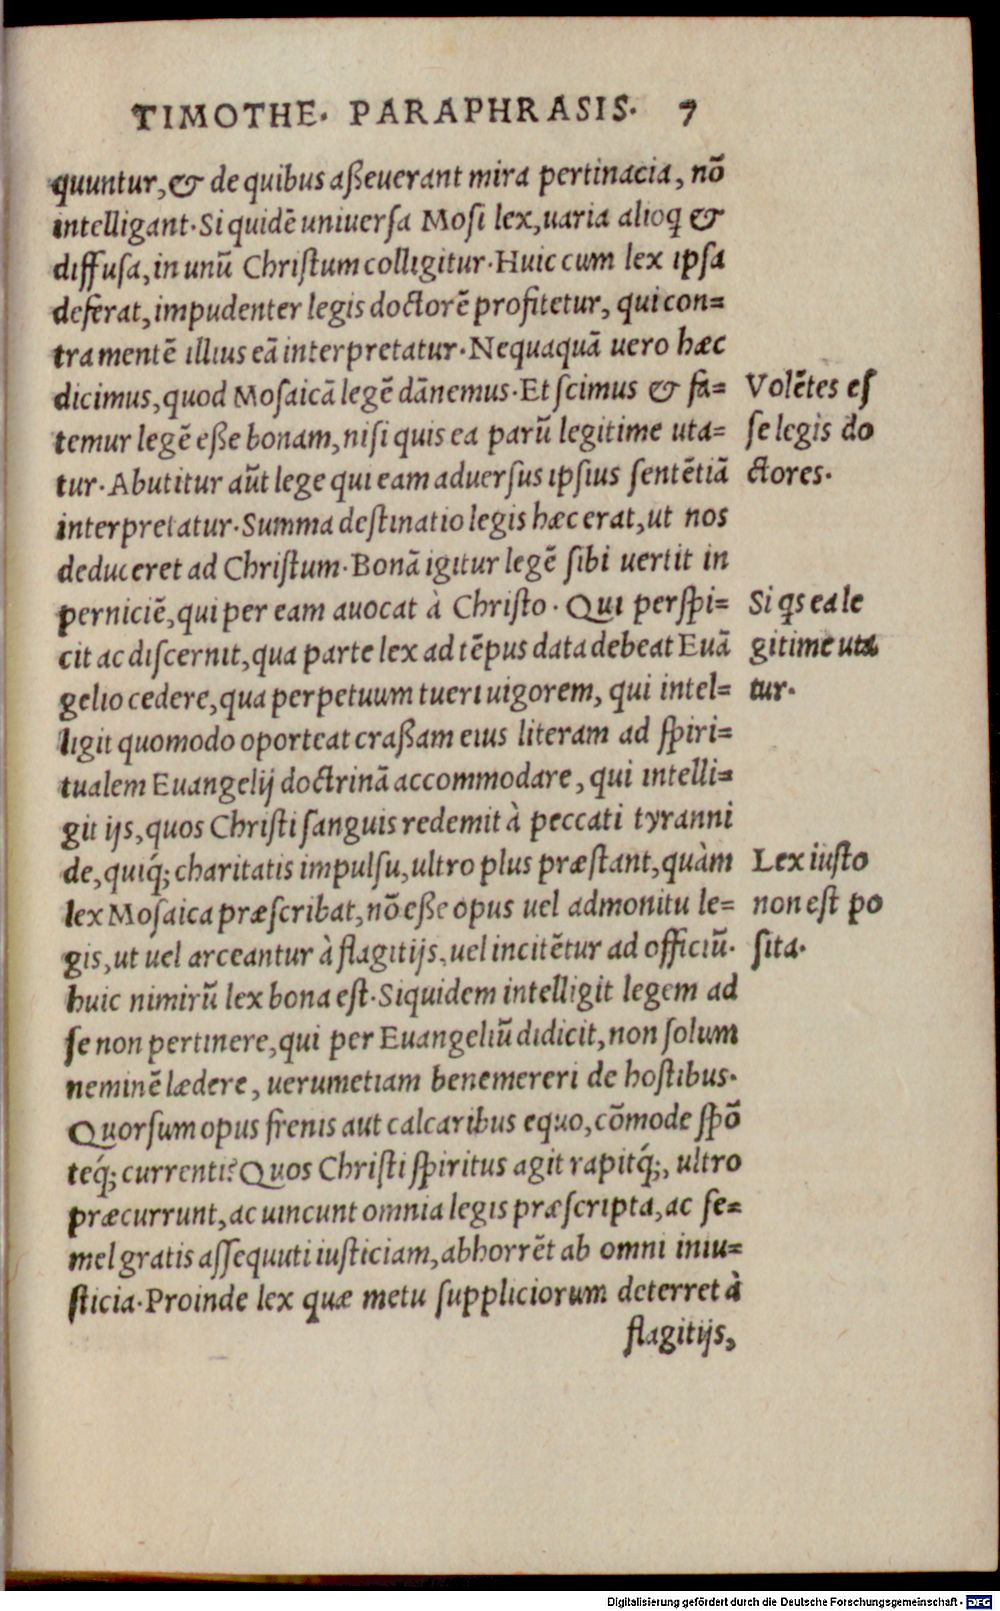 TIMOTHE. PARAPHRASIS. 7
quuntur, & de quibus aßeuerant mira pertinacia, nō
intelligant. Si quidē uniuersa Mosi lex, uaria alioq &
diffusa, in unū Christum colligitur. Huic cum lex ipsa
deferat, impudenter legis doctorē profitetur, qui con=
tra mentē illius eā interpretatur. Nequaquā uero hæc
dicimus, quod Mosaicā legē dānemus. Et scimus & fa=
temur legē eße bonam, nisi quis ea parū legitime uta=
tur. Abutitur aūt lege qui eam aduersus ipsius sentētiā
interpretatur. Summa destinatio legis hæc erat, ut nos
deduceret ad Christum. Bonā igitur legē sibi uertit in
perniciē, qui per eam auocat à Christo. Qui perspi=
cit ac discernit, qua parte lex ad tēpus data debeat Euā
gelio cedere, qua perpetuum tueri uigorem, qui intel=
ligit quomodo oporteat craßam eius literam ad spiri=
tualem Euangelij doctrinā accommodare, qui intelli=
git ijs, quos Christi sanguis redemit à peccati tyranni
de, quiq́; charitatis impulsu, ultro plus præstant, quàm
lex Mosaica præscribat, nō eße opus uel admonitu le=
gis, ut uel arceantur à flagitijs, uel incitētur ad officiū.
huic nimirū lex bona est. Siquidem intelligit legem ad
se non pertinere, qui per Euangeliū didicit, non solum
neminē lædere, uerumetiam benemereri de hostibus.
Quorsum opus frenis aut calcaribus equo, cōmode spō
teq́; currenti? Quos Christi spiritus agit rapitq́;, ultro
præcurrunt, ac uincunt omnia legis præscripta, ac se=
mel gratis assequuti iusticiam, abhorrēt ab omni iniu=
sticia. Proinde lex quæ metu suppliciorum deterret à
flagitijs,
Volētes es
se legis do
ctores.
Si qs ea le
gitime uta
tur.
Lex iusto
non est po
sita.
Digitalisierung gefördert durch die Deutsche Forschungsgemeinschaft - DFG